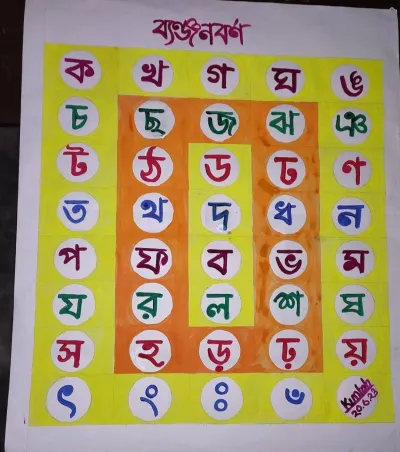 ব্যঞ্জনবর্ণ
ক খ গ ঘ ঙ
চ ছ জ ঝ ঞ
ট ঠ ড ঢ ণ
ত থ দ ধ ন
প ফ ব ভ ম
য র ল শ ষ
স হ ড় ঢ় য়
ৎ ং ঃ ঁ
20.6.23